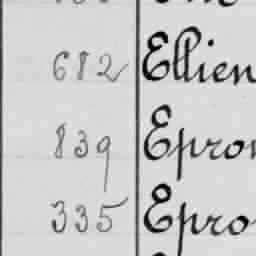 682 Ellien
839 Epron
335 Epro